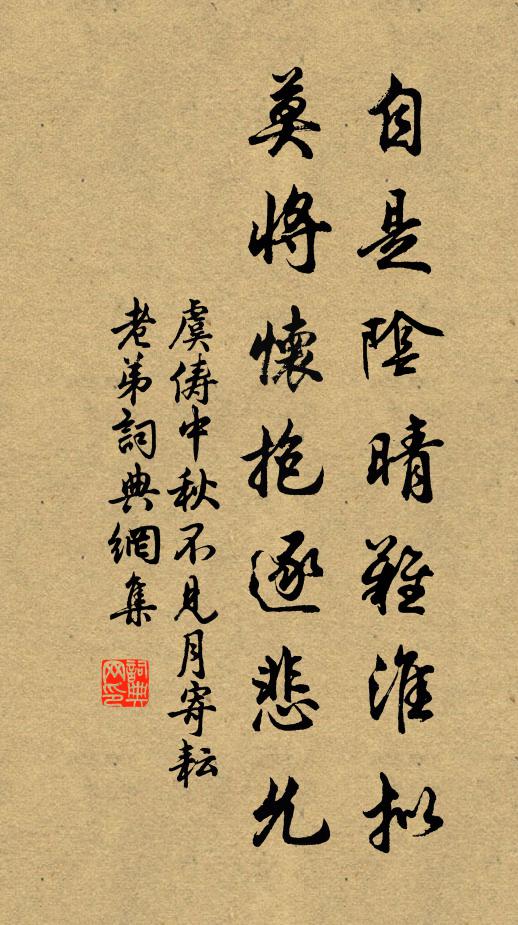 自是陰晴難准拟
莫將懷抱逐悲允
虞儔中秋不見月寄耘
老弟詞典網集
詞典网印